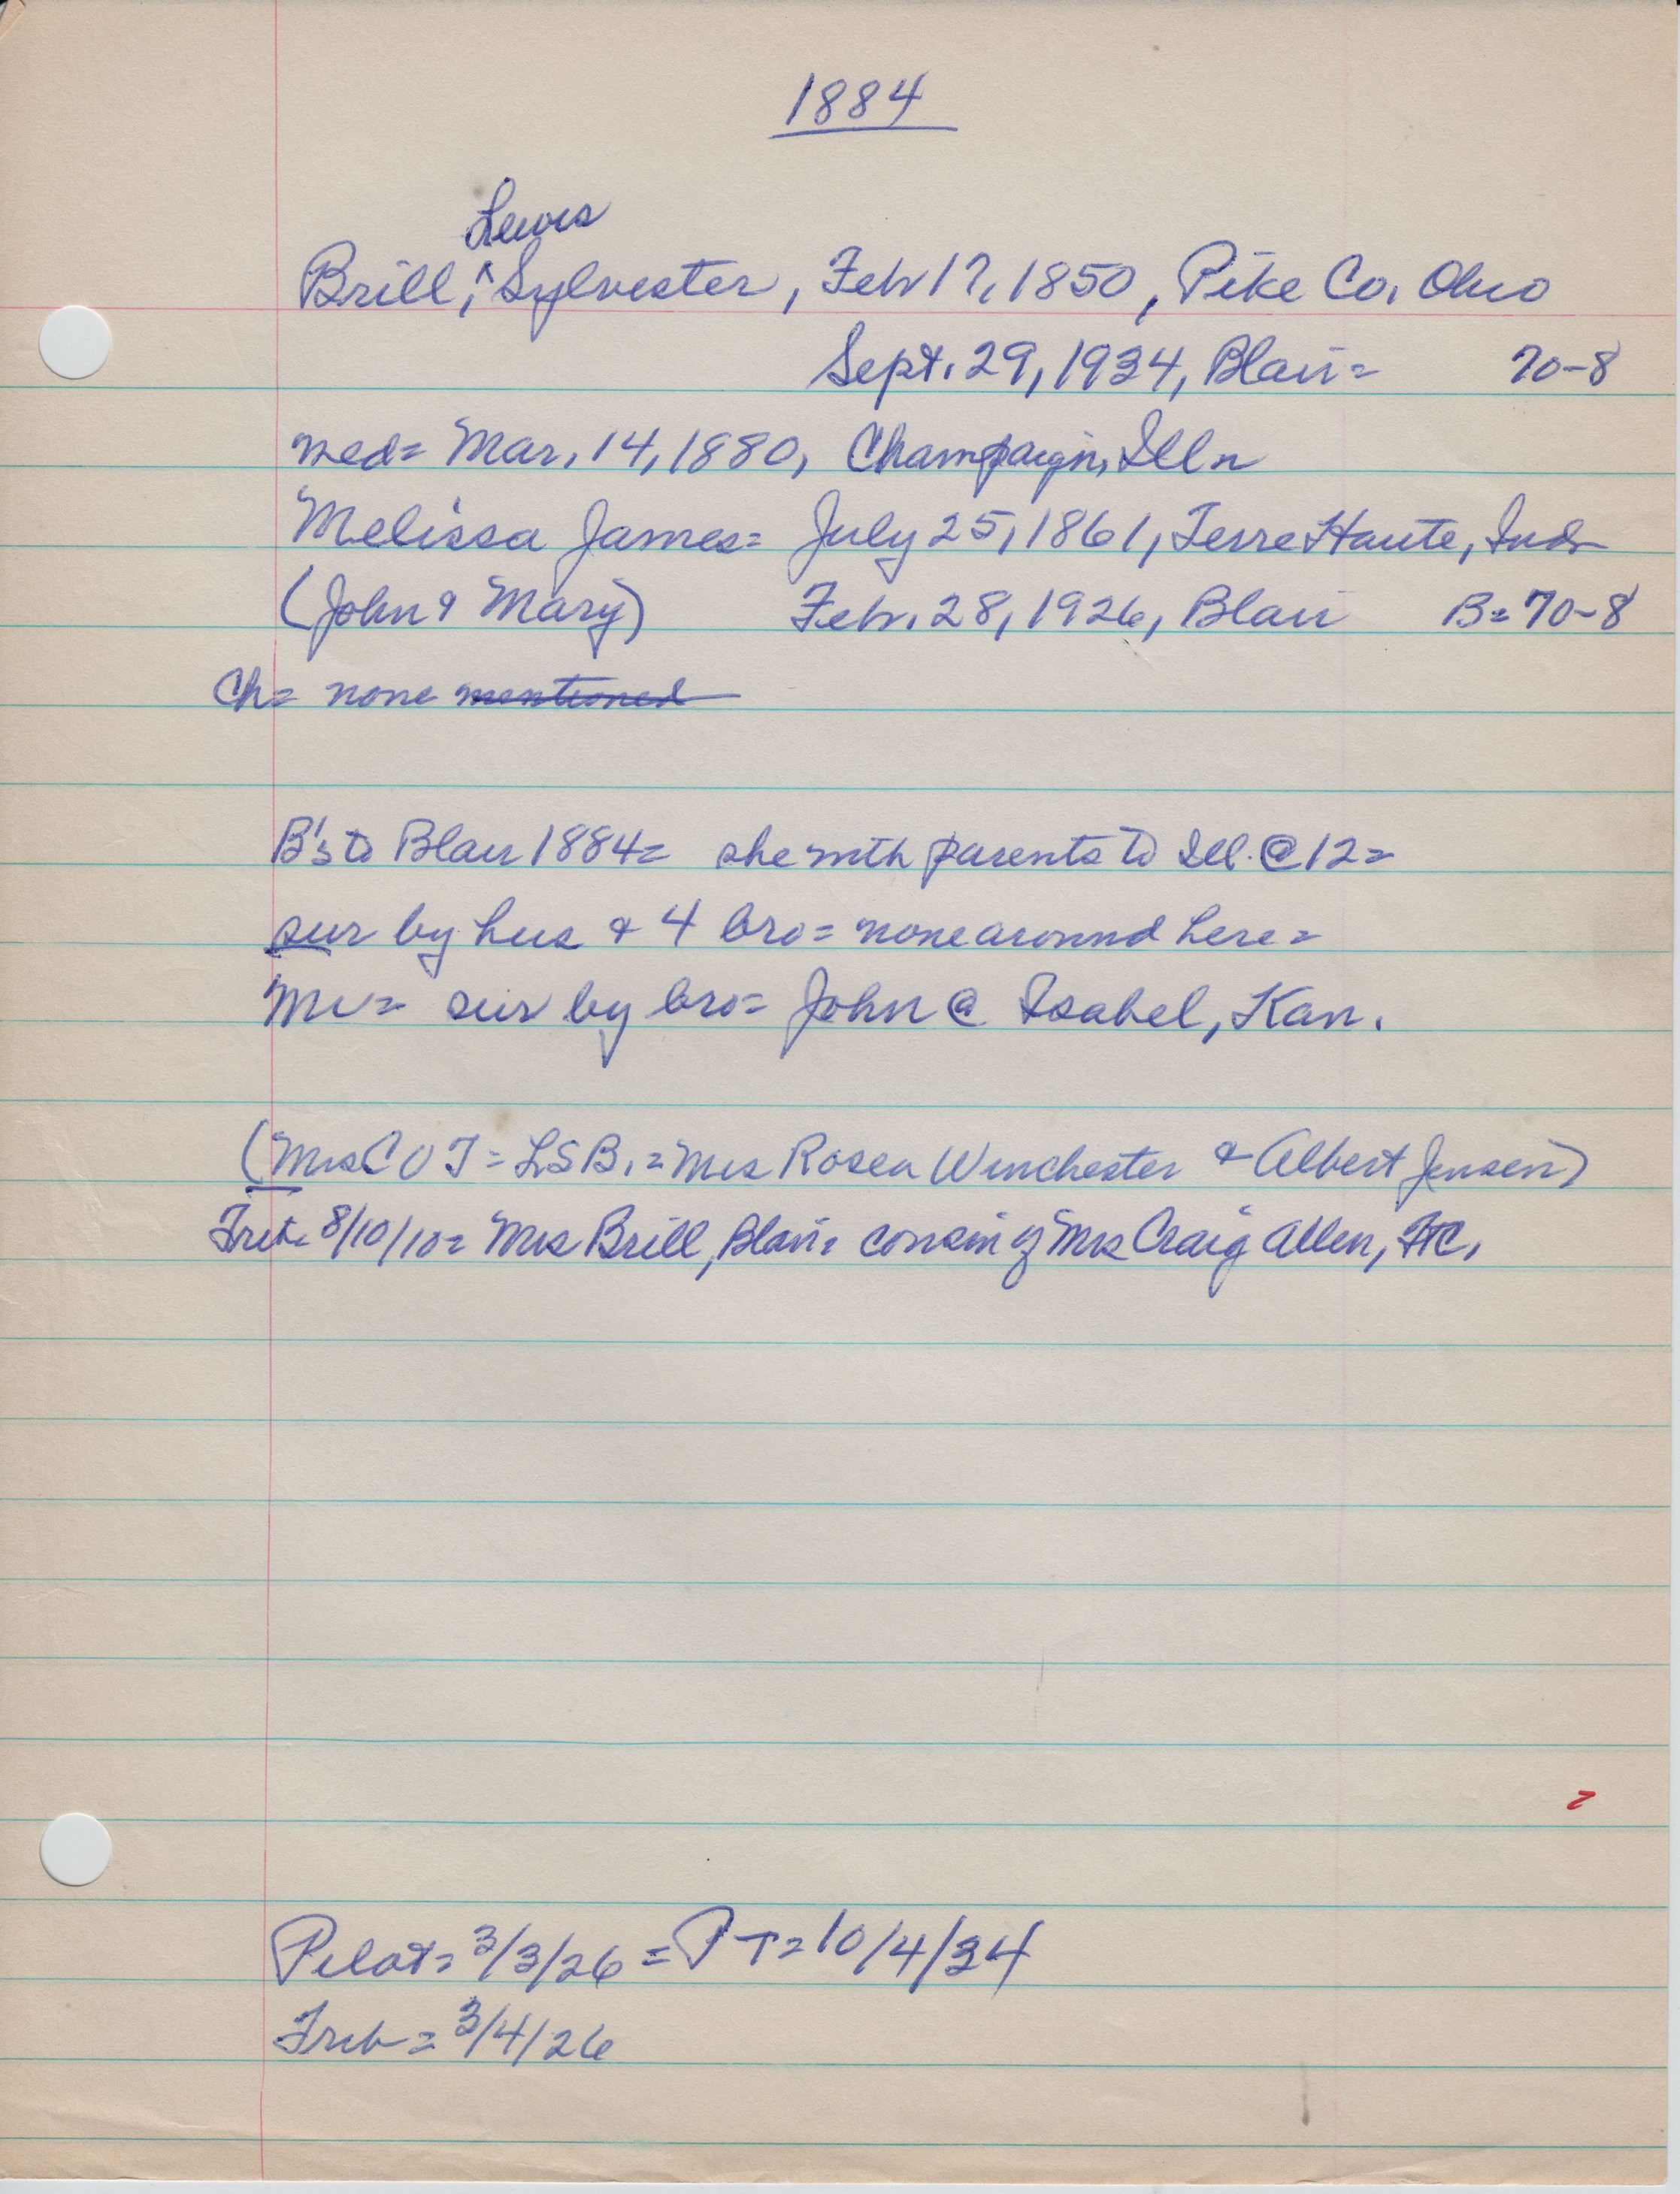 1884
Lewis
Brill, ^ Sylvester, Feb 17, 1850, Pike Co. Ohio
Sept. 29, 1934, Blair= 70-8
med= Mar. 14, 1880, Champaign, Illn
Melissa James= July 25, 1861, Terre Haute, Ind
(John & Mary) Feb. 28, 1926, Blair B= 70-8
Ch= none mentioned
B's to Blair 1884= she with parents to Ill. @ 12=
sur by hus & 4 bro= none around here=
Mr= sur by bro= John @ Isabel, Kan.
(Mrs C O J= LSB.= Mrs Rosea Winchester & Albert Jensen)
8/10/10= Mrs Brill, Blair= cousin of Mrs Craig Allen, FTC.
Pilot= 3/3/26 = PT= 10/4/34
= 3/4/26